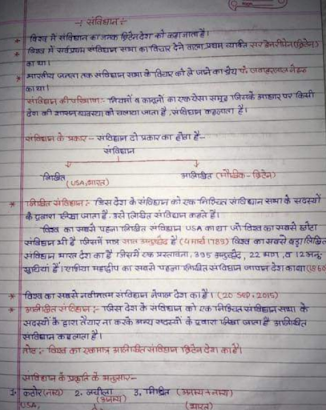 -: संविधान :-
* विश्व में संविधान का जनक ब्रिटेन देश को कहा जाता है।
* विश्व में सर्वप्रथम संविधान सभा का विचार देने वाला प्रथम व्यक्ति सर हेनरी मेन (ब्रिटेन)
का था।
* भारतीय जनता तक संविधान सभा के विचार को ले जाने का श्रेय पं. जवाहरलाल नेहरू
का था।
संविधान की परिभाषा:- नियमों व कानूनों का एक ऐसा समूह जिसके आधार पर किसी
देश की शासन व्यवस्था को चलाया जाता है, संविधान कहलाता है।
संविधान के प्रकार - संविधान दो प्रकार का होता है-
संविधान
लिखित अलिखित (मौखिक - ब्रिटेन)
(USA, भारत)
* लिखित संविधान :- जिस देश के संविधान को एक निश्चित संविधान सभा के सदस्यों
के द्वारा लिखा जाता है, उसे लिखित संविधान कहते हैं।
विश्व का सबसे पहला लिखित संविधान USA का था जो विश्व का सबसे छोटा
संविधान भी है जिसमें मात्र सात अनुच्छेद है (4 मार्च 1789) विश्व का सबसे बड़ा लिखित
संविधान भारत देश का है जिसमें एक प्रस्तावना, 395 अनुच्छेद, 22 भाग, व 12 अनु-
सूचियां हैं। एशिया महाद्वीप का सबसे पहला लिखित संविधान जापान देश का था
* विश्व का सबसे नवीनतम संविधान नेपाल देश का है। (20 Sep. 2015)
* अलिखित संविधान :- जिस देश के संविधान को एक निश्चित संविधान सभा के
सदस्यों के द्वारा तैयार ना करके अन्य सदस्यों के द्वारा लिखा जाता है अलिखित
संविधान कहलाता है।
नोट:- विश्व का एकमात्र अलिखित संविधान ब्रिटेन देश का है।
संविधान के प्रकृति के अनुसार -
1. कठोर (नम्य) 2. लचीला 3. मिश्रित (अनम्य + नम्य)
USA, (अनम्य) (भारत)